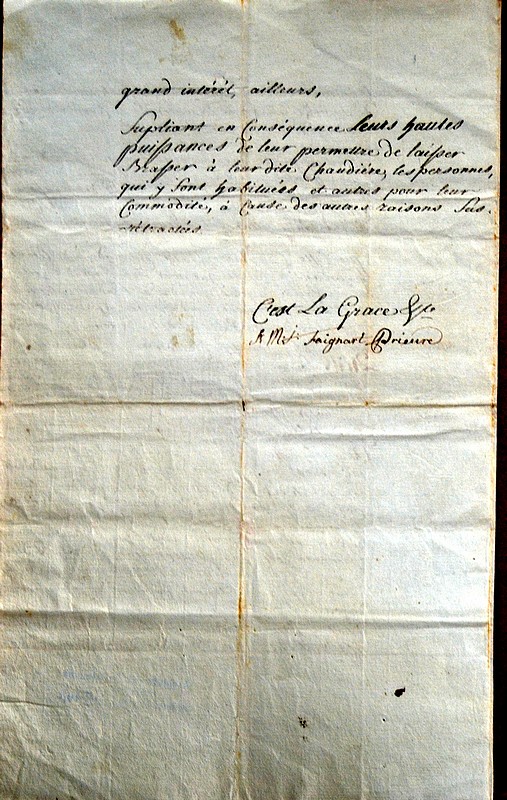 grand intérêt, ailleurs,
Supliant en Conséquence leurs hautes
puissances de leur permettre de laisser
Brasser à leur dite Chaudière, les personnes,
qui y Sont habituées et autres pour leur
Commodité, à Cause des autres raisons Sus-
C'est La Grace &te
Saignart Prieure